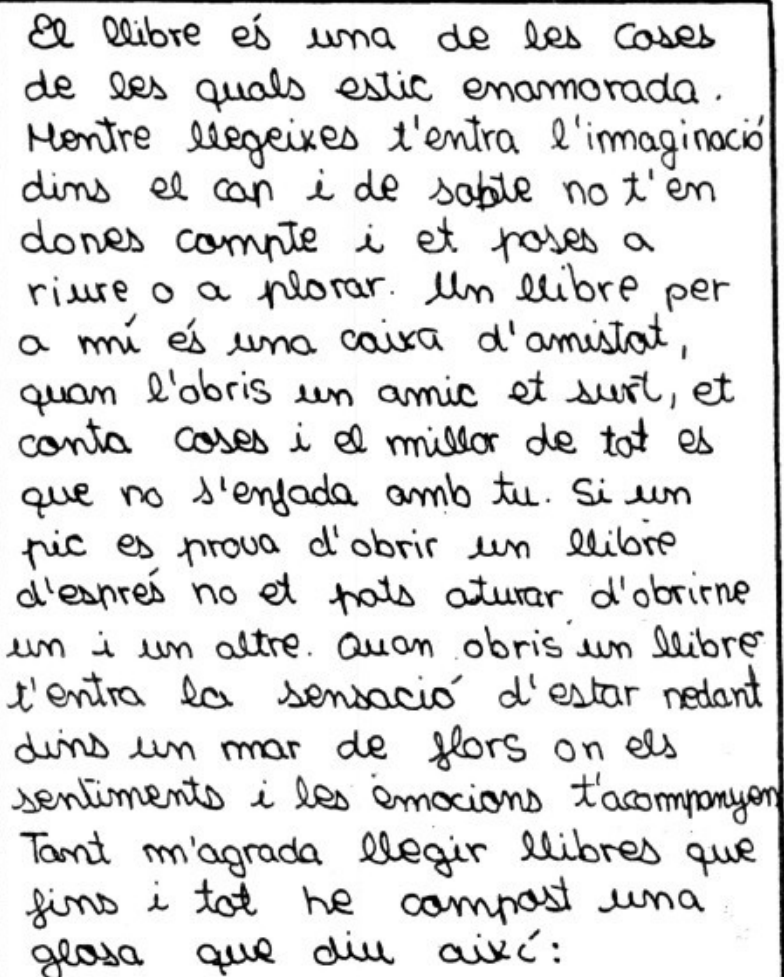 El llibre és una de les coses
de les quals estic enamorada.
Mentre llegeixes t'entra l'immaginació
dins el cap i de sobte no t'en
dones compte i et poses a
riure o a plorar. Un llibre per
a mí és una caixa d'amistat,
quan l'obris un amic et surt, et
conta coses i el millor de tot es
que no s'enfada amb tu. Si un
pic es prova d'obrir un llibre
d'esprés no et pots aturar d'obrirne
un i un altre. Quan obris un llibre
t'entra la sensació d'estar nedant
dins un mar de flors on els
sentiments i les emocions t'acompanyen
Tant m'agrada llegir llibres que
fins i tot he compost una
glosa que diu així: